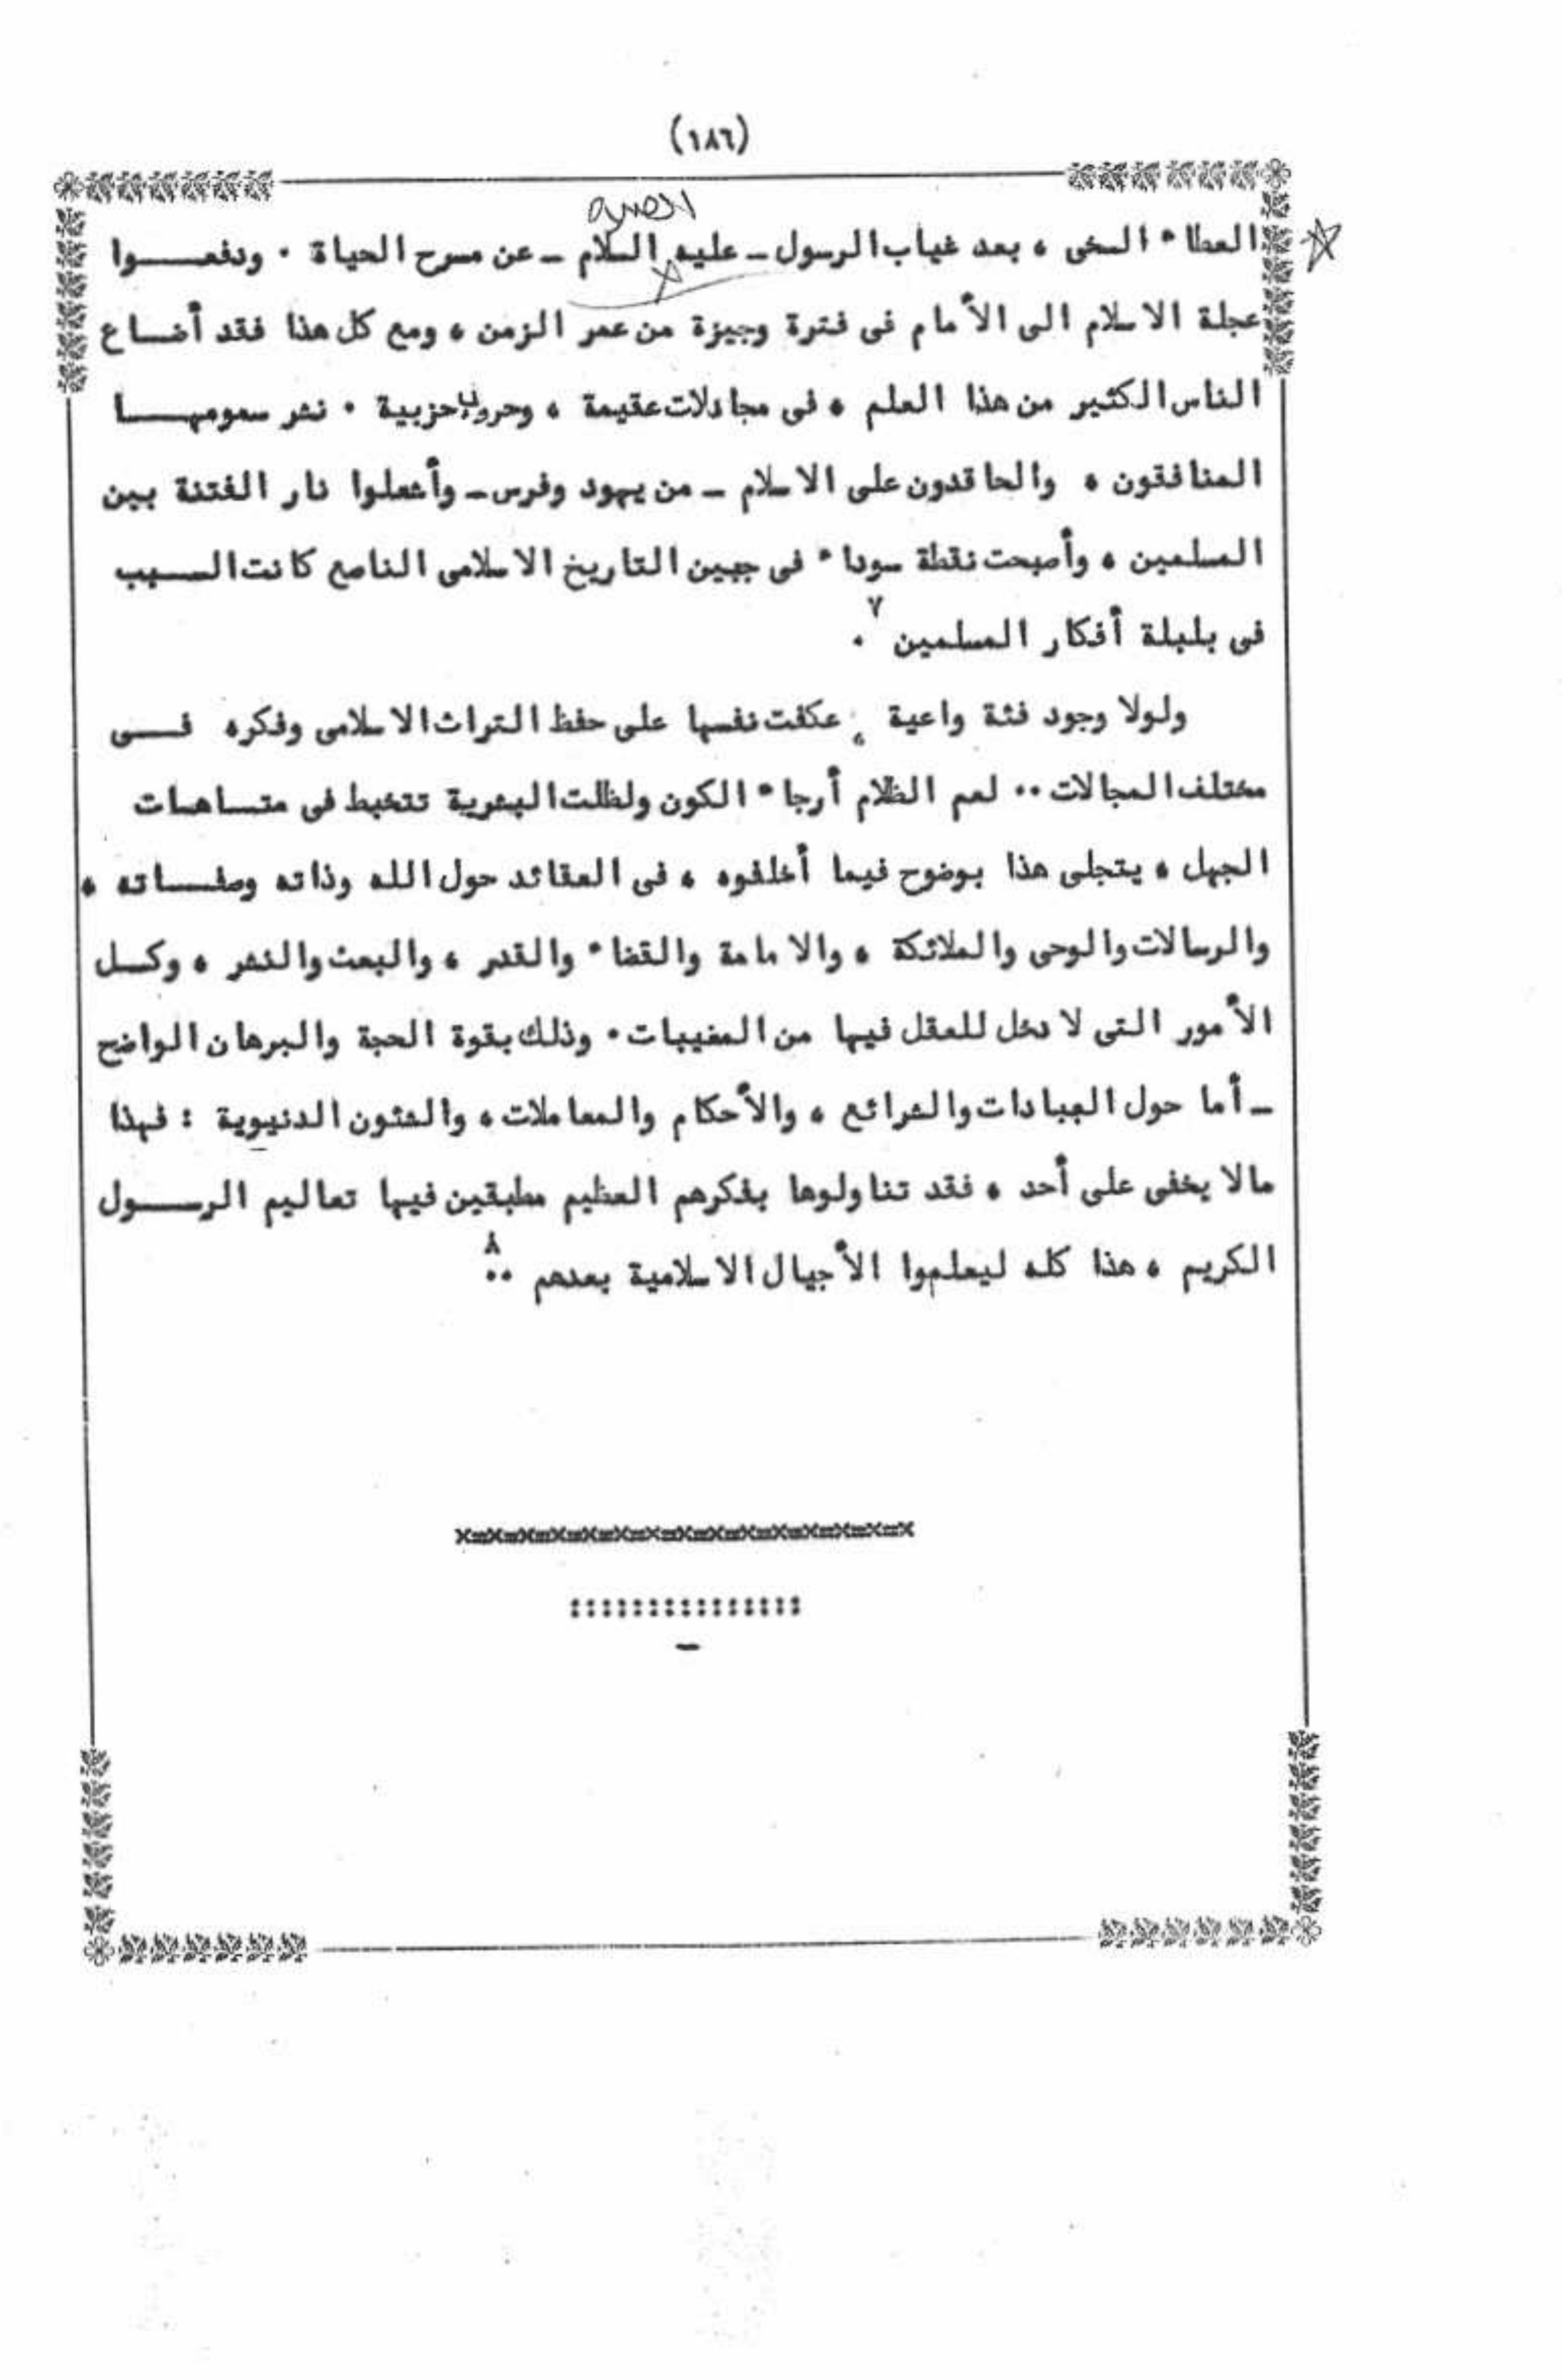 (١٨٦)
العطاء السخى ، بعد غياب الرسول ـ عليه السلام ـ عن مسرح الحياة ٠ ودفعـــوا
عجلة الاسلام الى الأمام فى فترة وجيزة من عمر الزمن ، ومع كل هذا فقد أضـاع
الناس الكثير من هذا العلم ، فى مجادلات عقيمة ، وحروب حزبية ٠ نشر سمومهـــا
المنافقون ، والحاقدون على الاسلام ـ من يهود وفرس ـ وأشعلوا نار الفتنة بين
المسلمين ، وأصبحت نقطة سوداء فى جبين التاريخ الاسلامى الناصع كانت الســبب
فى بلبلة أفكار المسلمين ٧ .
ولولا وجود فئة واعية ، عكفت نفسها على حفظ التراث الاسلامى وفكره فـــى
مختلف المجالات ٠٠ لعم الظلام أرجاء الكون ولظلت البشرية تتخبط فى متـاهـات
الجهل ، يتجلى هذا بوضوح فيما أخلفوه ، فى العقائد حول الله وذاته وصفـــاته ،
والرسالات والوحى والملائكة ، والامامة والقضاء والقدر ، والبعث والنشر ، وكــل
الأمور التى لا دخل للعقل فيها من المغيبات ٠ وذلك بقوة الحجة والبرهان الواضح
ـ أما حول العبادات والشرائع ، والأحكام والمعاملات ، والشئون الدنيوية : فهذا
مالا يخفى على أحد ، فقد تناولوها بفكرهم العظيم مطبقين فيها تعاليم الرســـول
الكريم ، هذا كله ليعلموا الأجيال الاسلامية بعدهم ٨ ٠٠
x=x=x=x=x=x=x=x=x=x=x=x=x=x=x
:::::::::::::::
ـ